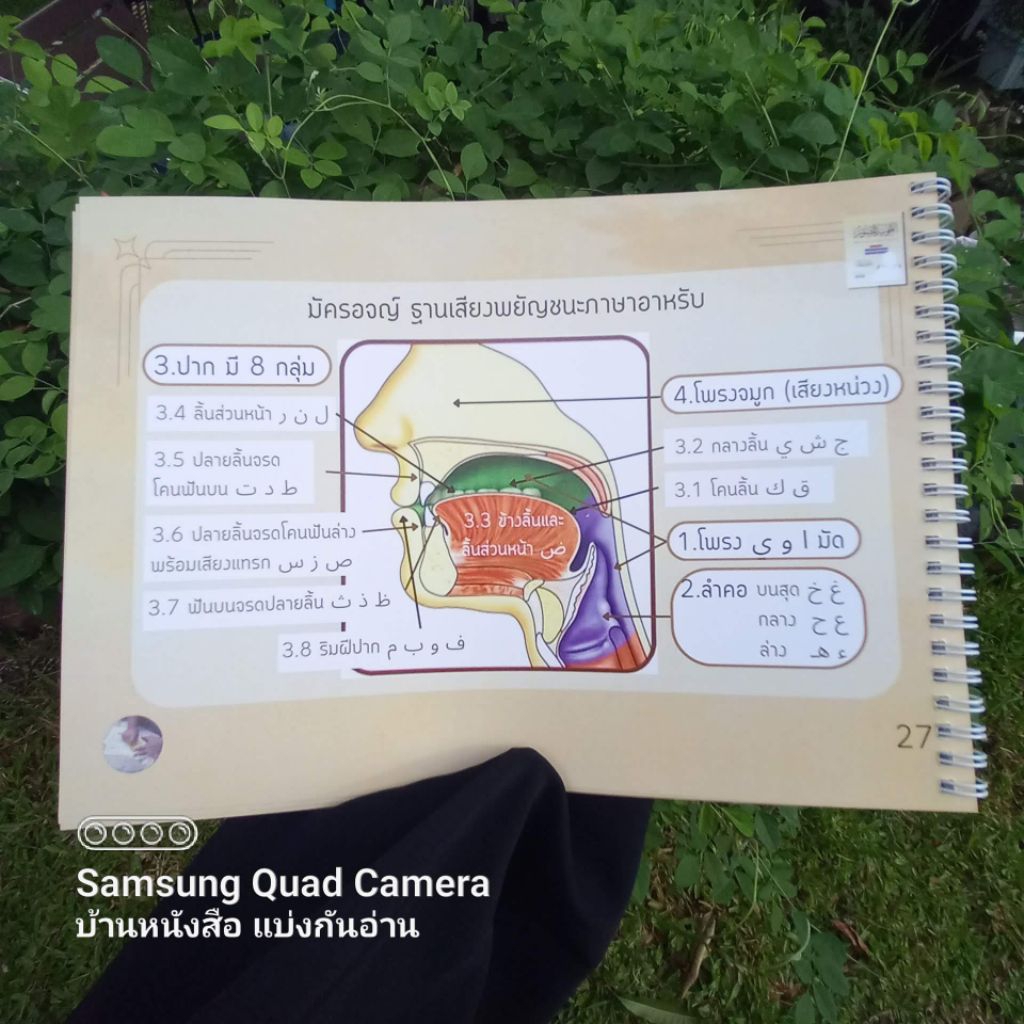 มัครอจญ์ ฐานเสียงพยัญชนะภาษาอาหรับ
3.ปาก มี 8 กลุ่ม
3.4 ลิ้นส่วนหน้า ل ن ر
3.5 ปลายลิ้นจรด
โคนฟันบน ط د ت
3.6 ปลายลิ้นจรดโคนฟันล่าง
พร้อมเสียงแทรก ص ز س
3.7 ฟันบนจรดปลายลิ้น ظ ذ ث
3.8 ริมฝีปาก ف و ب م
3.3 ข้างลิ้นและ
ลิ้นส่วนหน้า ض
4.โพรงจมูก (เสียงหน่วง)
3.2 กลางลิ้น ج ش ي
3.1 โคนลิ้น ق ك
1.โพรง ا و ي มัด
2.ลำคอ บนสุด غ خ
กลาง ع ح
ล่าง ء هـ
27
Samsung Quad Camera
บ้านหนังสือ แบ่งกันอ่าน